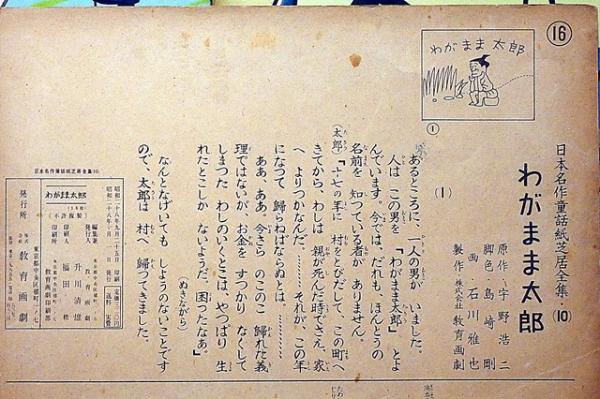 ⑯
わがまま太郎
①
日本名作童話紙芝居全集・(10)
わがまま太郎
原作・宇野浩二
脚色・島崎剛
画・石川雅也
製作・株式会社教育画劇
(1)
あるところに、一人の男が いました。
人は この男を 「わがまま太郎」とよ
んでいます。今では、だれも ほんとうの
名前を 知つている者が ありません。
(太郎)「十七の年に 村をとびだして、この町へ
きてから、わしは 親が死んだ時でさえ 家
へ よりつかなんだ。………それが、この年
になつて 帰らねばならぬとは。…………
ああ、ああ、今さら のこのこ 帰れた義
理ではないが、お金を すつかり なくして
しまつた わしのいくとこは、やつぱり 生
れたとこしか ないようだ。困つたなあ。」
(ぬきながら)
なんとなげいても しようのないことです
ので、太郎は 村へ 帰つてきました。
日本名作童話紙芝居全集(10)
わがまま太郎
(不許複製)
昭和二十八年九月二十五日 印刷
発行人
印刷人
升川清雄
福田
印刷所
教育画劇印刷部
発行所
東京都中央区
株式会社 教育画劇